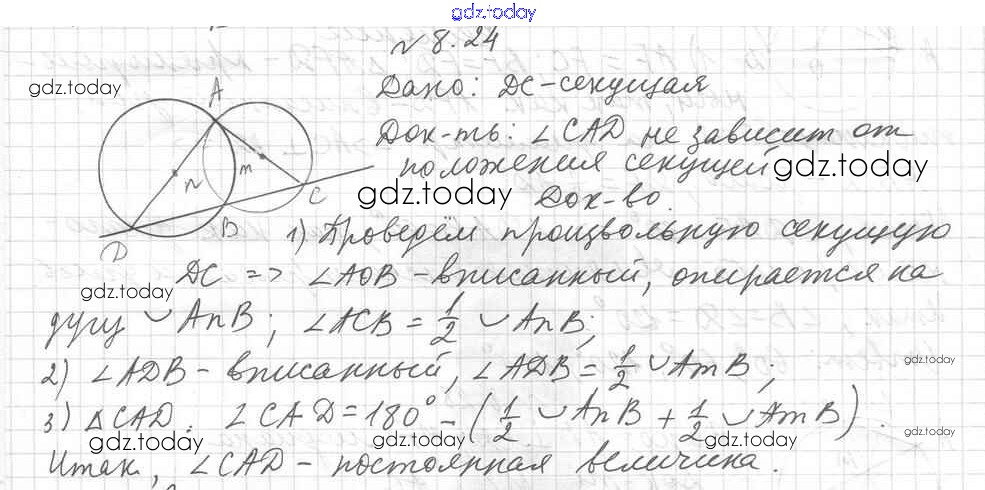 gdz.today
№ 8.24
gdz.today
Дано: DC-секущая
A
Док-ть: ∠CAD не зависит от
положения секущей gdz.today
n m
gdz.today
C
Док-во.
B
D
1) Проведём произвольную секущую
DC => ∠AOB - вписанный, опирается на
gdz.today
дугу ◡ AnB; ∠ACB = 1/2 ◡ AnB;
2) ∠ADB - вписанный, ∠ADB = 1/2 ◡ AmB; gdz.today
3) △CAD. ∠CAD = 180° - (1/2 ◡ AnB + 1/2 ◡ AmB).
gdz.today gdz.today gdz.today
Итак, ∠CAD - постоянная величина.